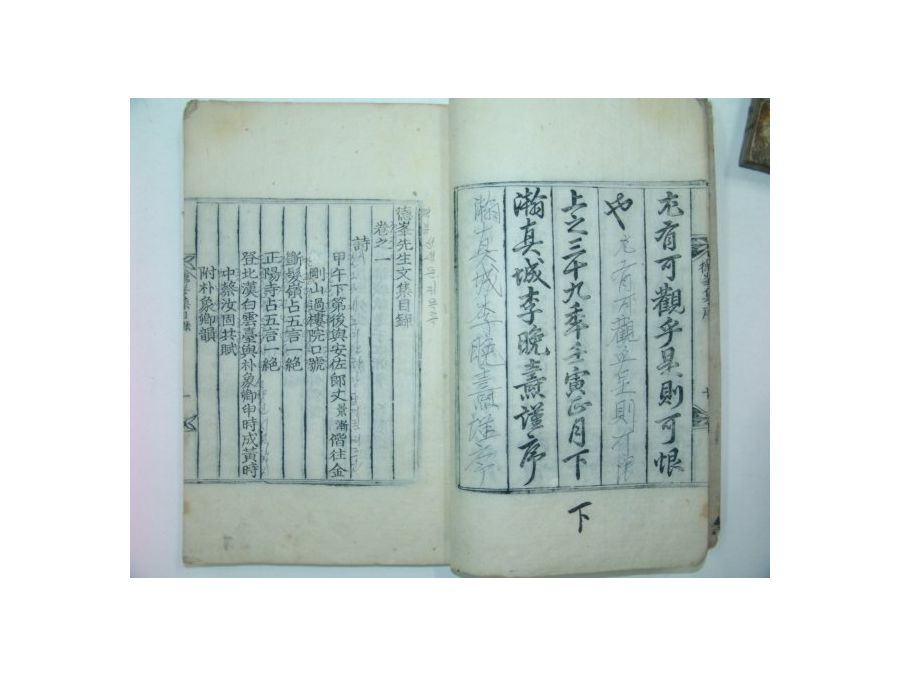 尤有可觀乎是則可恨
也
上之三十九年壬寅正月下
瀚真城李晚燾謹序
下
德峯先生文集目錄
卷之一
詩
甲午下第後與安佐郎丈景漸偕往金
剛山過樓院口號
斷髮嶺占五言一絕
正陽寺占五言一絕
登北漢白雲臺與朴象卿申時成黃時
中蔡汝固共賦
附朴象卿韻